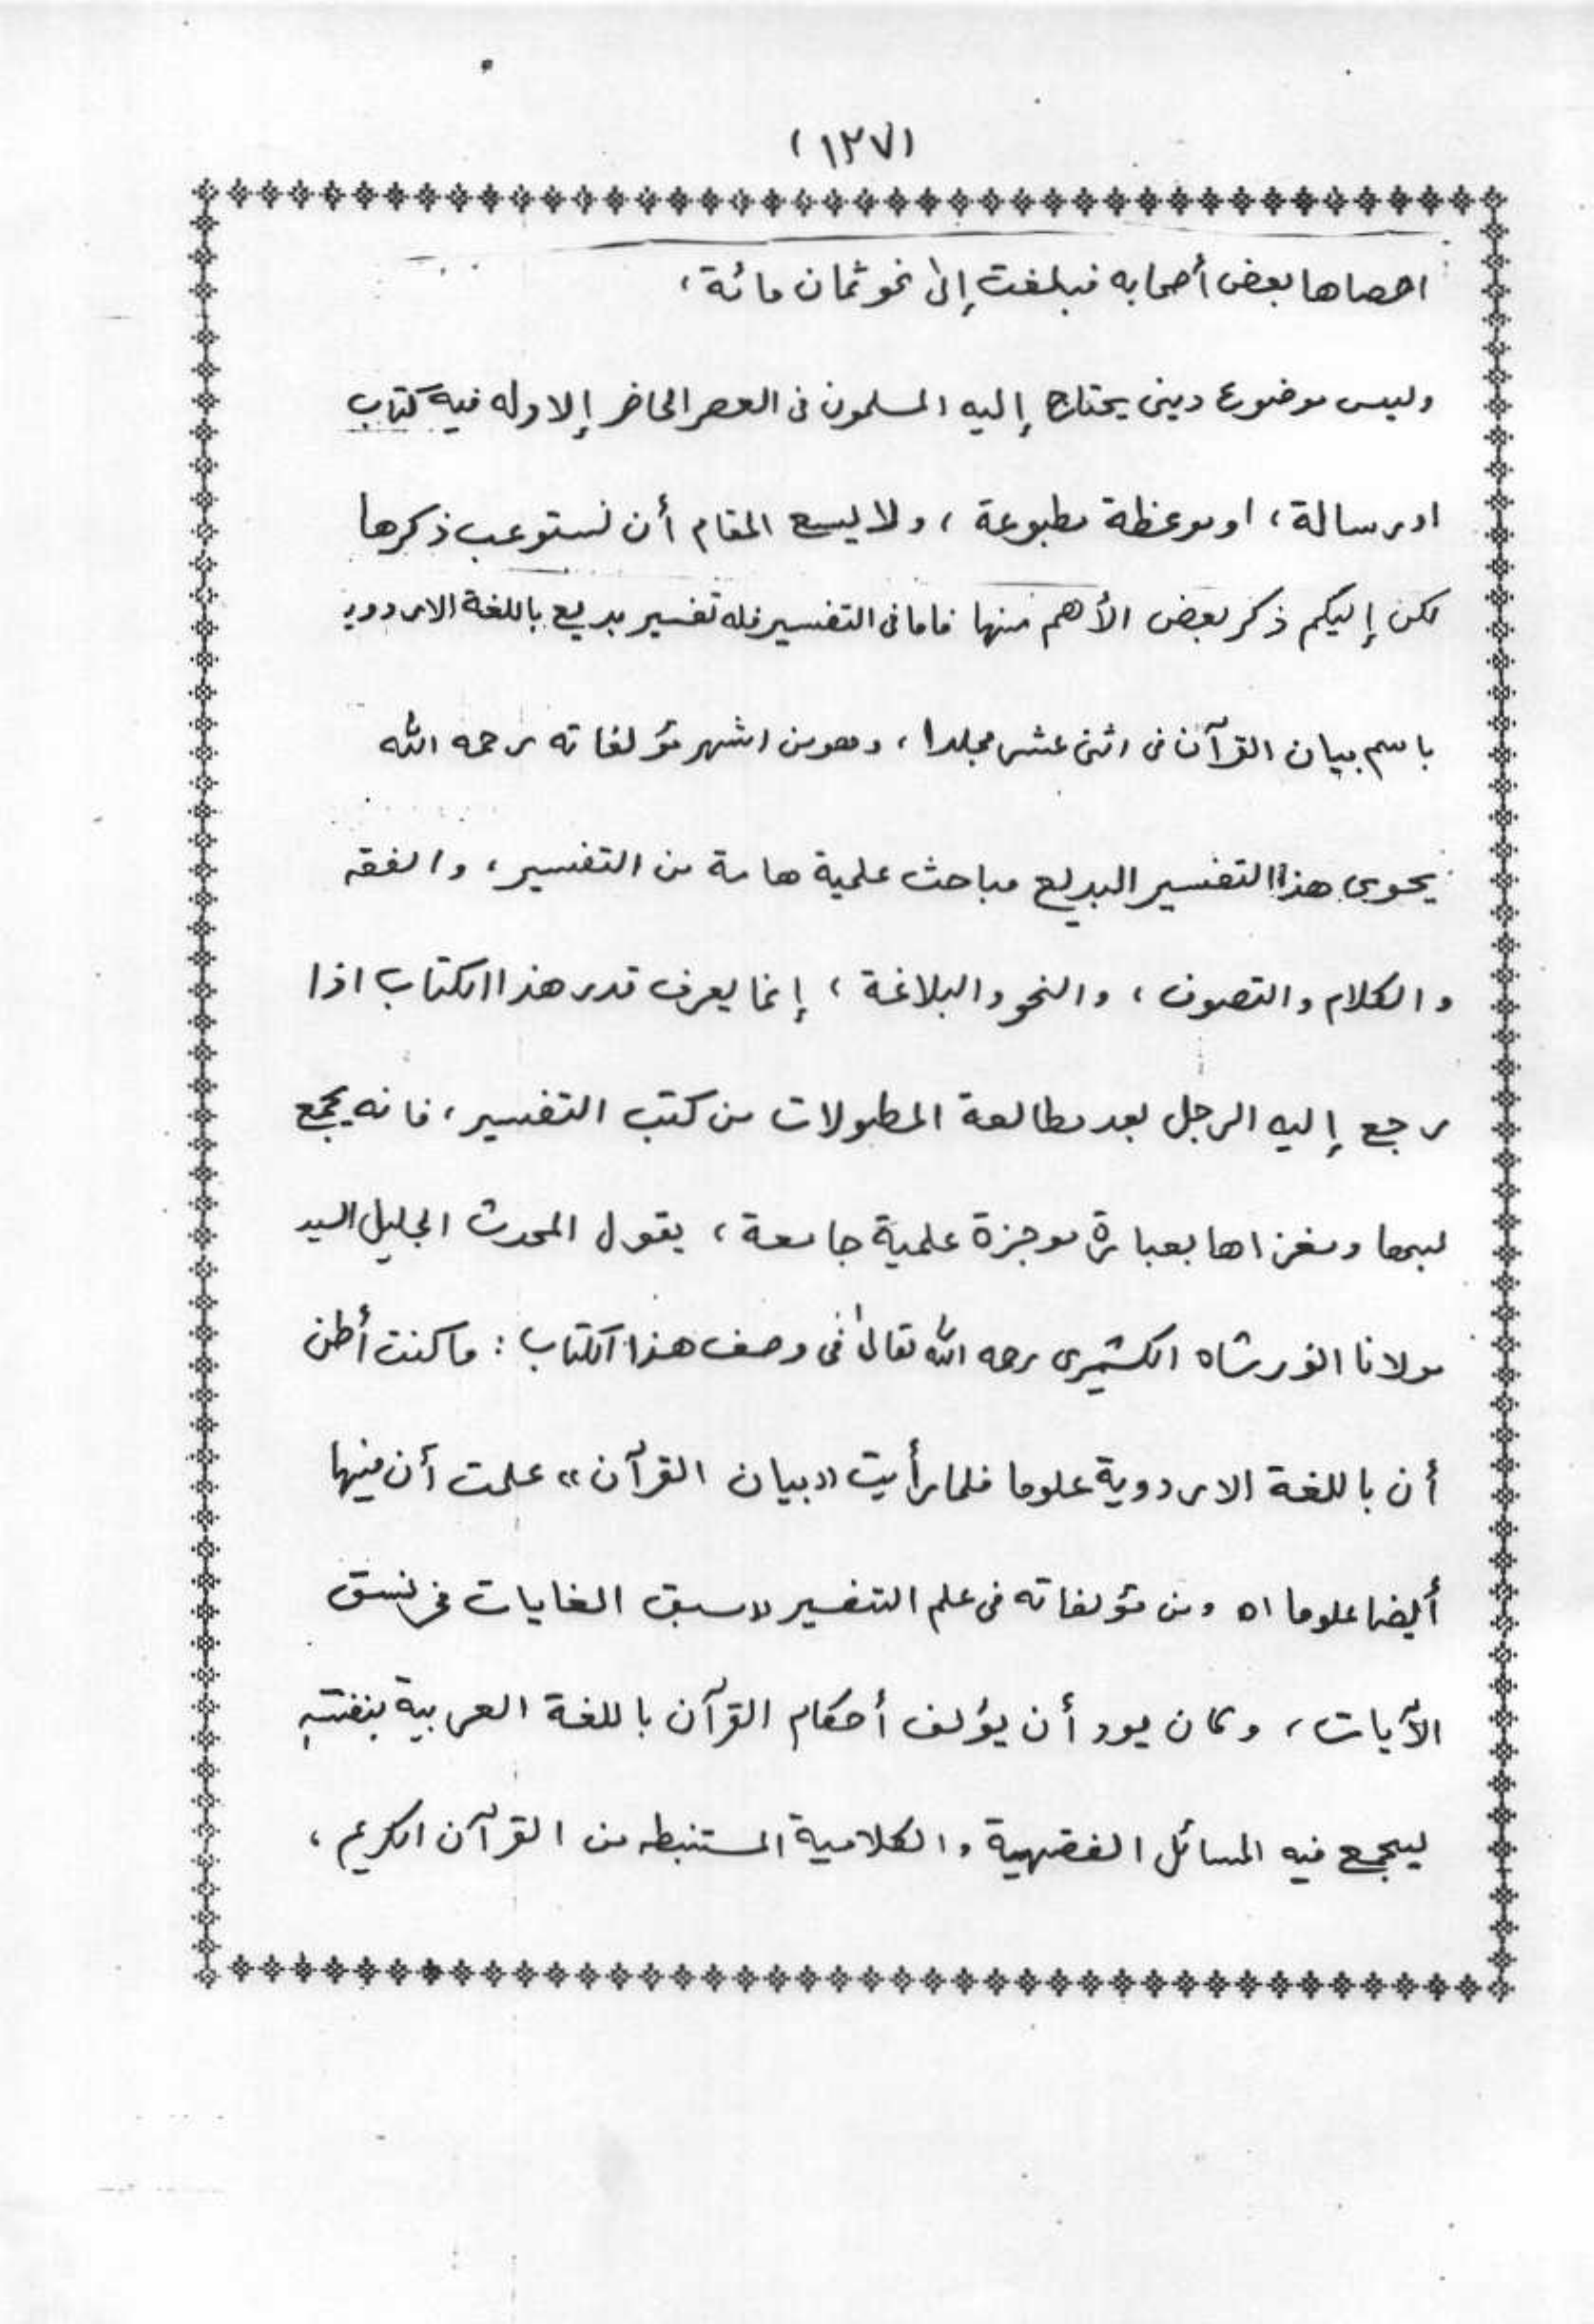 (١٢٧)
احصاها بعض أصحابه فبلغت إلى نحو ثمان مائة،
وليس موضوع ديني يحتاج إليه المسلمون في العصر الحاضر إلا وله فيه كتاب
او رسالة، او موعظة مطبوعة، ولا يسع المقام أن نستوعب ذكرها
لكن إليكم ذكر بعض الأهم منها فاما في التفسير فله تفسير بديع باللغة الاردوية
باسم بيان القرآن في اثنى عشر مجلدا، وهو من اشهر مؤلفاته رحمه الله
يحوى هذا التفسير البديع مباحث علمية هامة من التفسير، والفقه
والكلام والتصوف، والنحو والبلاغة، إنما يعرف قدر هذا الكتاب اذا
رجع إليه الرجل بعد مطالعة المطولات من كتب التفسير، فانه يجمع
لبها ومغزاها بعبارة موجزة علمية جامعة، يقول المحدث الجليل السيد
مولانا انور شاه الكشميرى رحمه الله تعالى في وصف هذا الكتاب: ما كنت أظن
أن باللغة الاردوية علوما فلما رأيت «بيان القرآن» علمت أن فيها
أيضا علوما اه ومن مؤلفاته في علم التفسير «سبق الغايات في نسق
الآيات، وكان يود أن يؤلف أحكام القرآن باللغة العربية بنفسه
ليجمع فيه المسائل الفقهية والكلامية المستنبطه من القرآن الكريم،